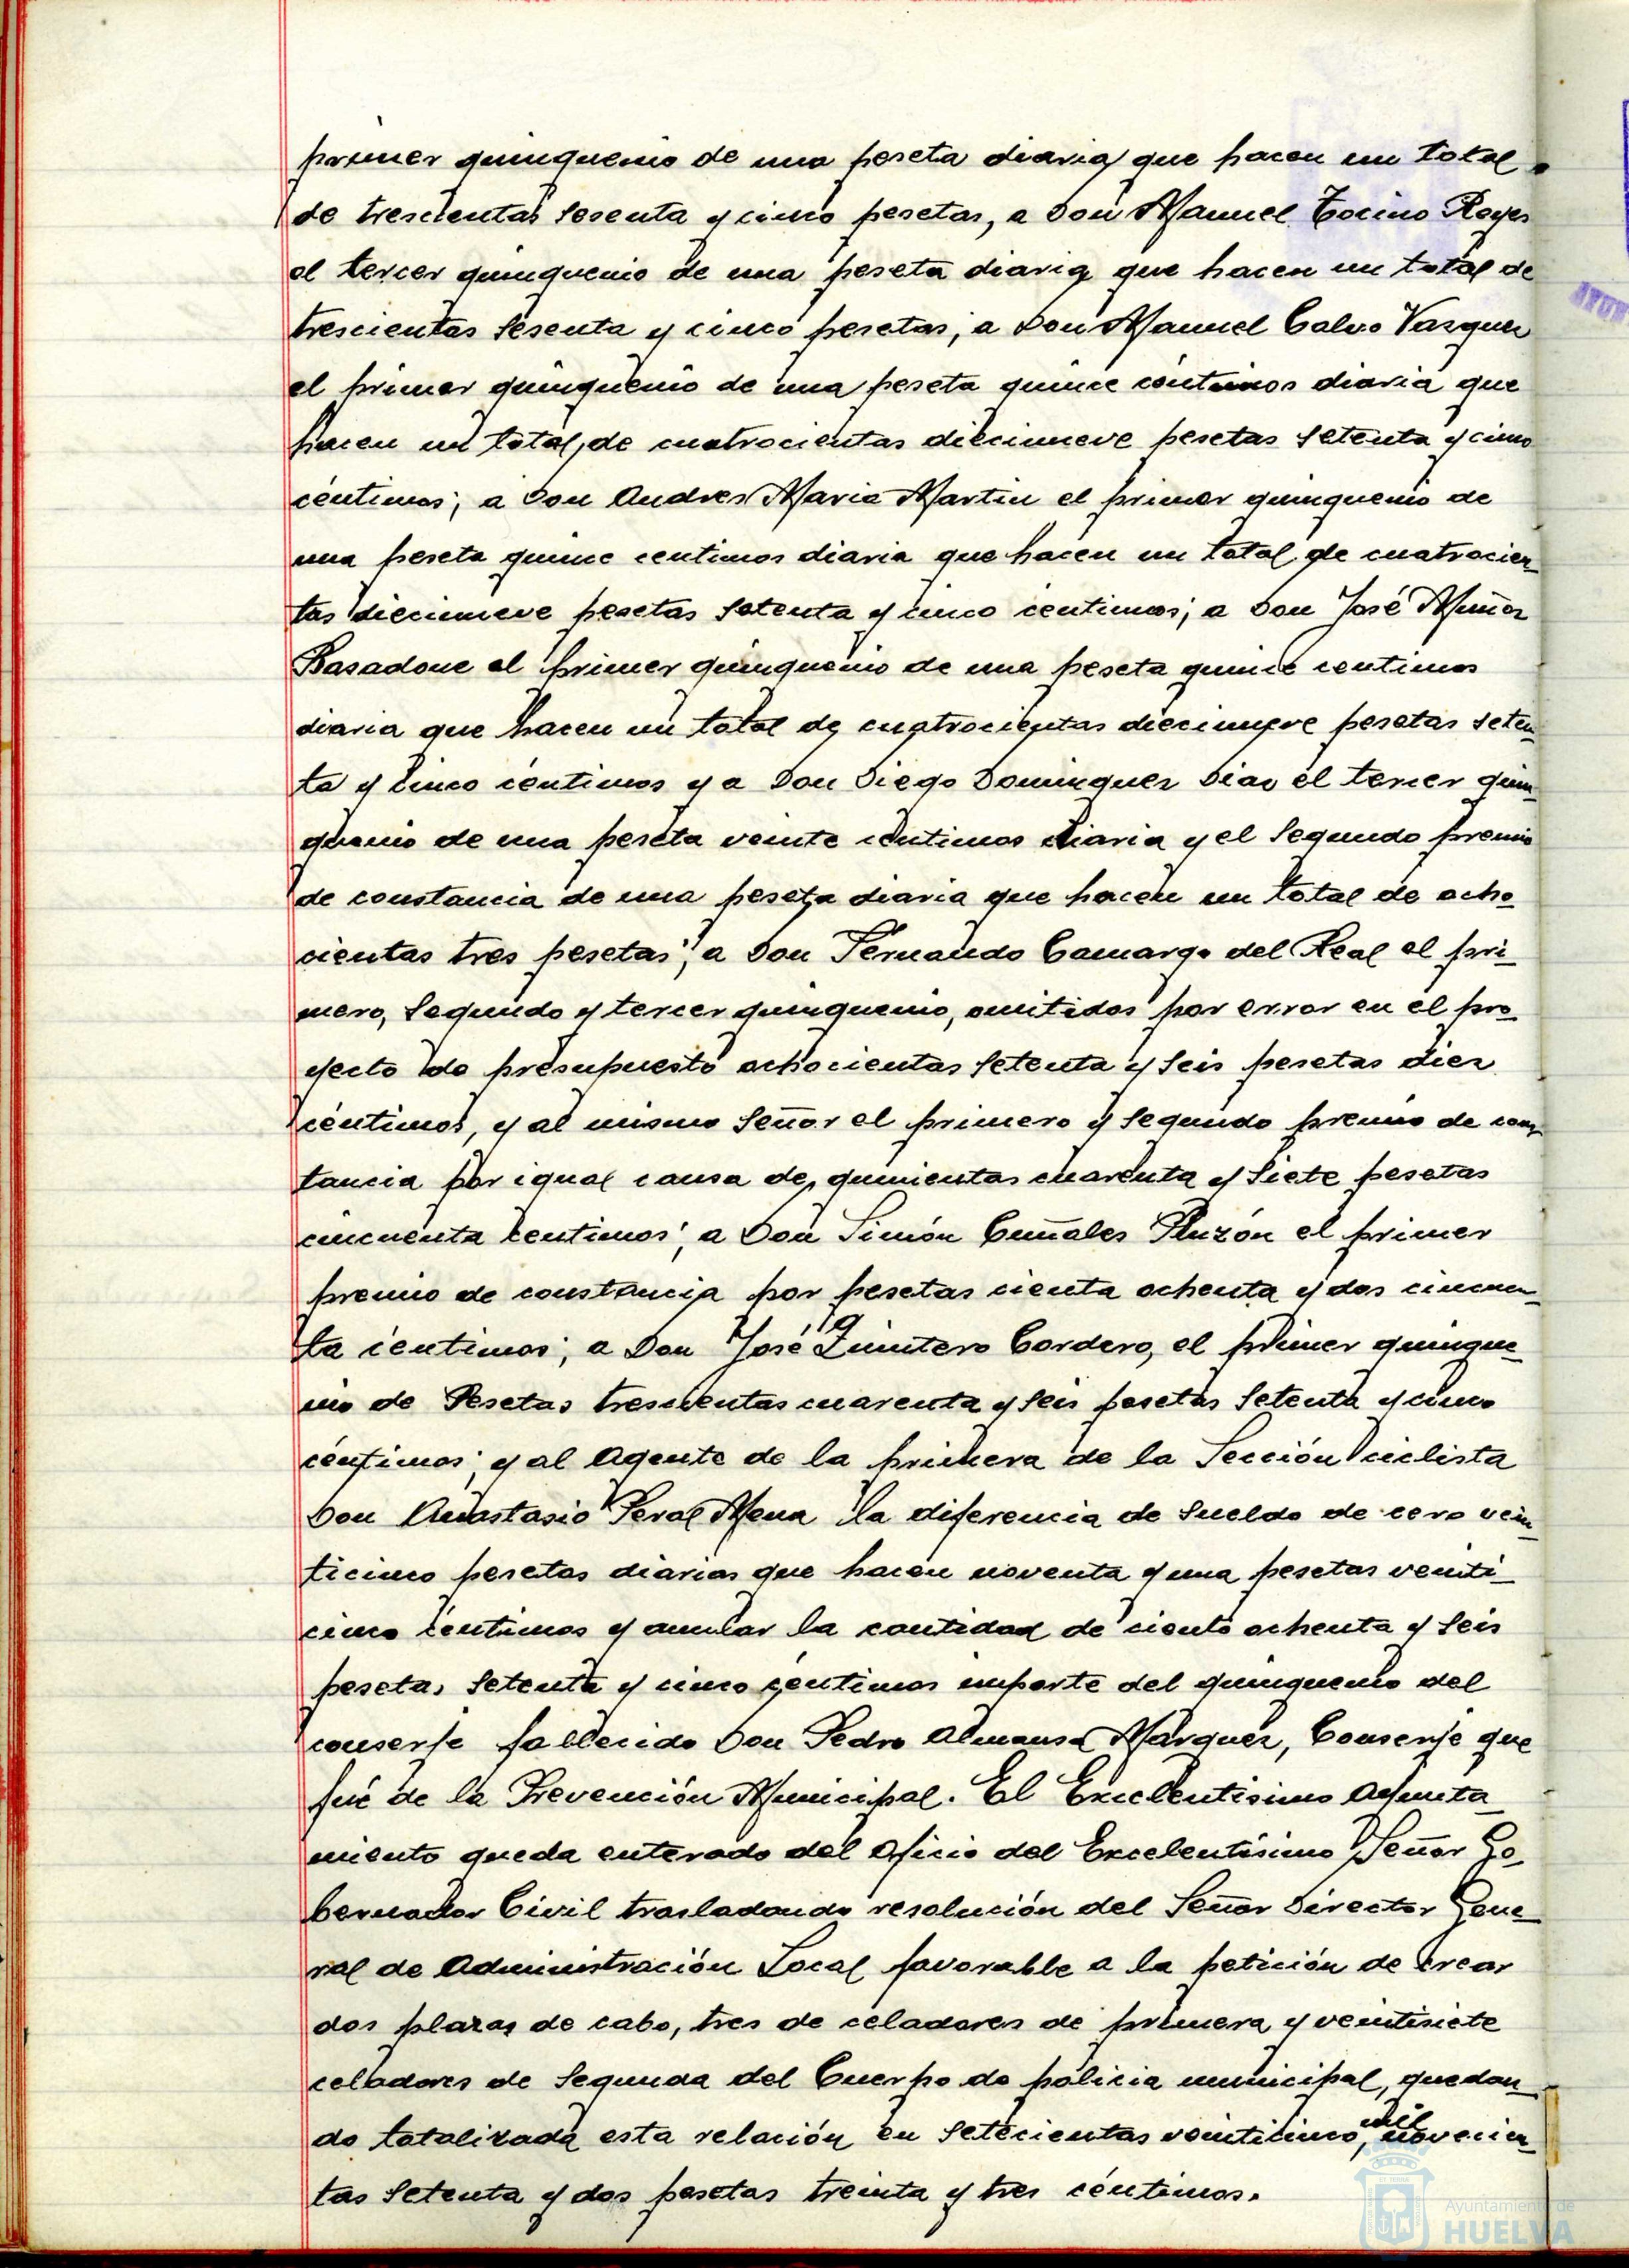 primer quinquenio de una peseta diaria que hacen un total
de trescientas sesenta y cinco pesetas, a Don Manuel Tocino Reyes
el tercer quinquenio de una peseta diaria que hacen un total de
trescientas sesenta y cinco pesetas; a Don Manuel Calvo Vazquez
el primer quinquenio de una peseta quince céntimos diaria que
hacen un total, de cuatrocientas diecinueve pesetas setenta y cinco
céntimos; a Don Andres Maria Martin el primer quinquenio de
una peseta quince centimos diaria que hacen un total de cuatrocien-
tas diecinueve pesetas setenta y cinco centimos; a Don José Muñoz
Basadone el primer quinquenio de una peseta quince centimos
diaria que hacen un total de cuatrocientas diecinueve pesetas seten-
ta y cinco céntimos y a Don Diego Dominguez Diaz el tercer quin-
quenio de una peseta veinte céntimos diaria y el segundo premio
de constancia de una peseta diaria que hacen un total de ocho-
cientas tres pesetas; a Don Fernando Camargo del Real el pri-
mero, segundo y tercer quinquenio, omitidos por error en el pro-
yecto de presupuesto ochocientas setenta y seis pesetas diez
céntimos, y al mismo señor el primero y segundo premio de cons-
tancia por igual causa de, quinientas cuarenta y siete pesetas
cincuenta centimos; a Don Simón Cuñales Pluzón el primer
premio de constancia por pesetas cienta ochenta y dos cincuen-
ta céntimos; a Don José Quintero Cordero, el primer quinque-
nio de Pesetas trescientas cuarenta y seis pesetas setenta y cinco
céntimos; y al Agente de la primera de la Sección ciclista
Don Anastasio Peral Mena la diferencia de sueldo de cero vein-
ticinco pesetas diarias que hacen noventa y una pesetas veinti-
cinco céntimos y anular la cantidad de ciento ochenta y seis
pesetas setenta y cinco céntimos importe del quinquenio del
conserje fallecido Don Pedro Almansa Marquez, Conserje que
fué de la Prevención Municipal. El Excelentisimo Ayunta-
miento queda enterado del oficio del Excelentísimo Señor Go-
bernador Civil trasladando resolución del Señor Director Gene-
ral de Administración Local favorable a la petición de crear
dos plazas de cabo, tres de celadores de primera y veintisiete
celadores de segunda del Cuerpo de policia municipal, quedan-
do totalizada esta relación en setecientas veinticinco, mil novecien-
tas setenta y dos pesetas treinta y tres céntimos.
Ayuntamiento de
HUELVA